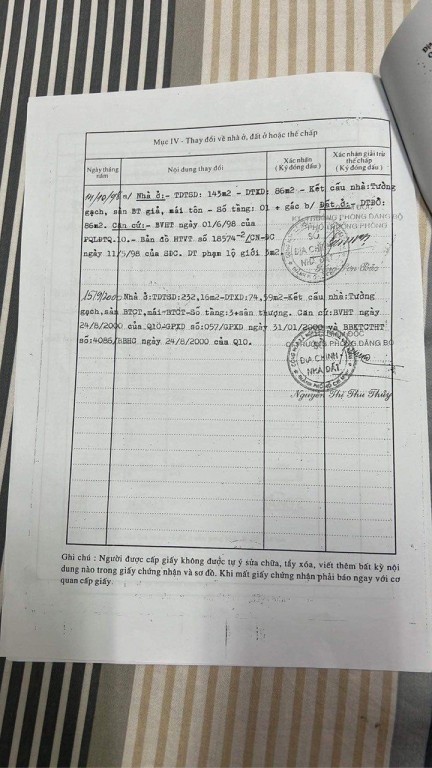 Mục IV - Thay đổi về nhà ở, đất ở hoặc thế chấp
Ngày tháng năm
Nội dung thay đổi
Xác nhận
( Ký đóng dấu )
Xác nhận giải trừ thế chấp
( Ký đóng dấu )
a/ Nhà ở:- TDTSD: 143m2 - DTXD: 86m2 - Kết cấu nhà:Tường
gạch, sàn BT giả, mái tôn - Số tầng: 01 + gác b/ Đất ở: DTĐỞ:
86m2. Căn cứ:- BVHT ngày 01/6/98 của
PQLĐTQ.10.- Bản đồ HTVT số 18574-2/CN-ĐC
ngày 11/5/98 của SĐC. DT phạm lộ giới 3m2.
PHÓ TRƯỞNG PHÒNG
SỞ
ĐỊA CHÍNH
NHÀ ĐẤT
15/9/2000
Nhà ở:TDTSD:232,16m2-DTXD:74,59m2-Kết cấu nhà:Tường
gạch,sàn BTCT,mái-BTCT-Số tầng:3+sân thượng. Căn cứ:BVHT ngày
24/8/2000 của Q10-GPXD số:057/GPXD ngày 31/01/2000 và BBKTCTHT
số:4086/BBHC ngày 24/8/2000 của Q10.
TRƯỞNG PHÒNG ĐĂNG BỘ
ĐỊA CHÍNH
NHÀ ĐẤT
Nguyễn Thị Thu Thủy
Ghi chú : Người được cấp giấy không được tự ý sửa chữa, tẩy xóa, viết thêm bất kỳ nội
dung nào trong giấy chứng nhận và sơ đồ. Khi mất giấy chứng nhận phải báo ngay với cơ
quan cấp giấy.